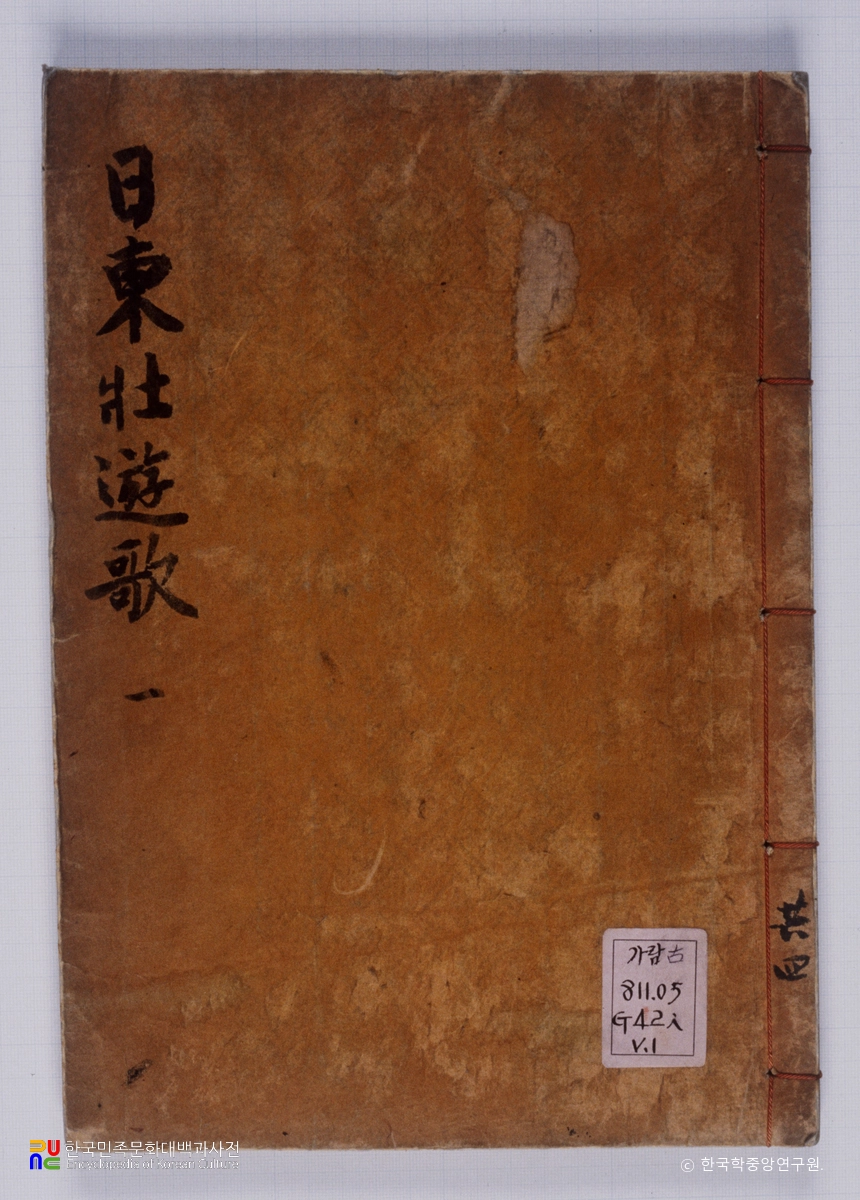 日東壯遊歌 一
共四
가람古
811.05
G42i
V.1
한국민족문화대백과사전
Encyclopedia of Korean Culture
ⓒ 한국학중앙연구원.